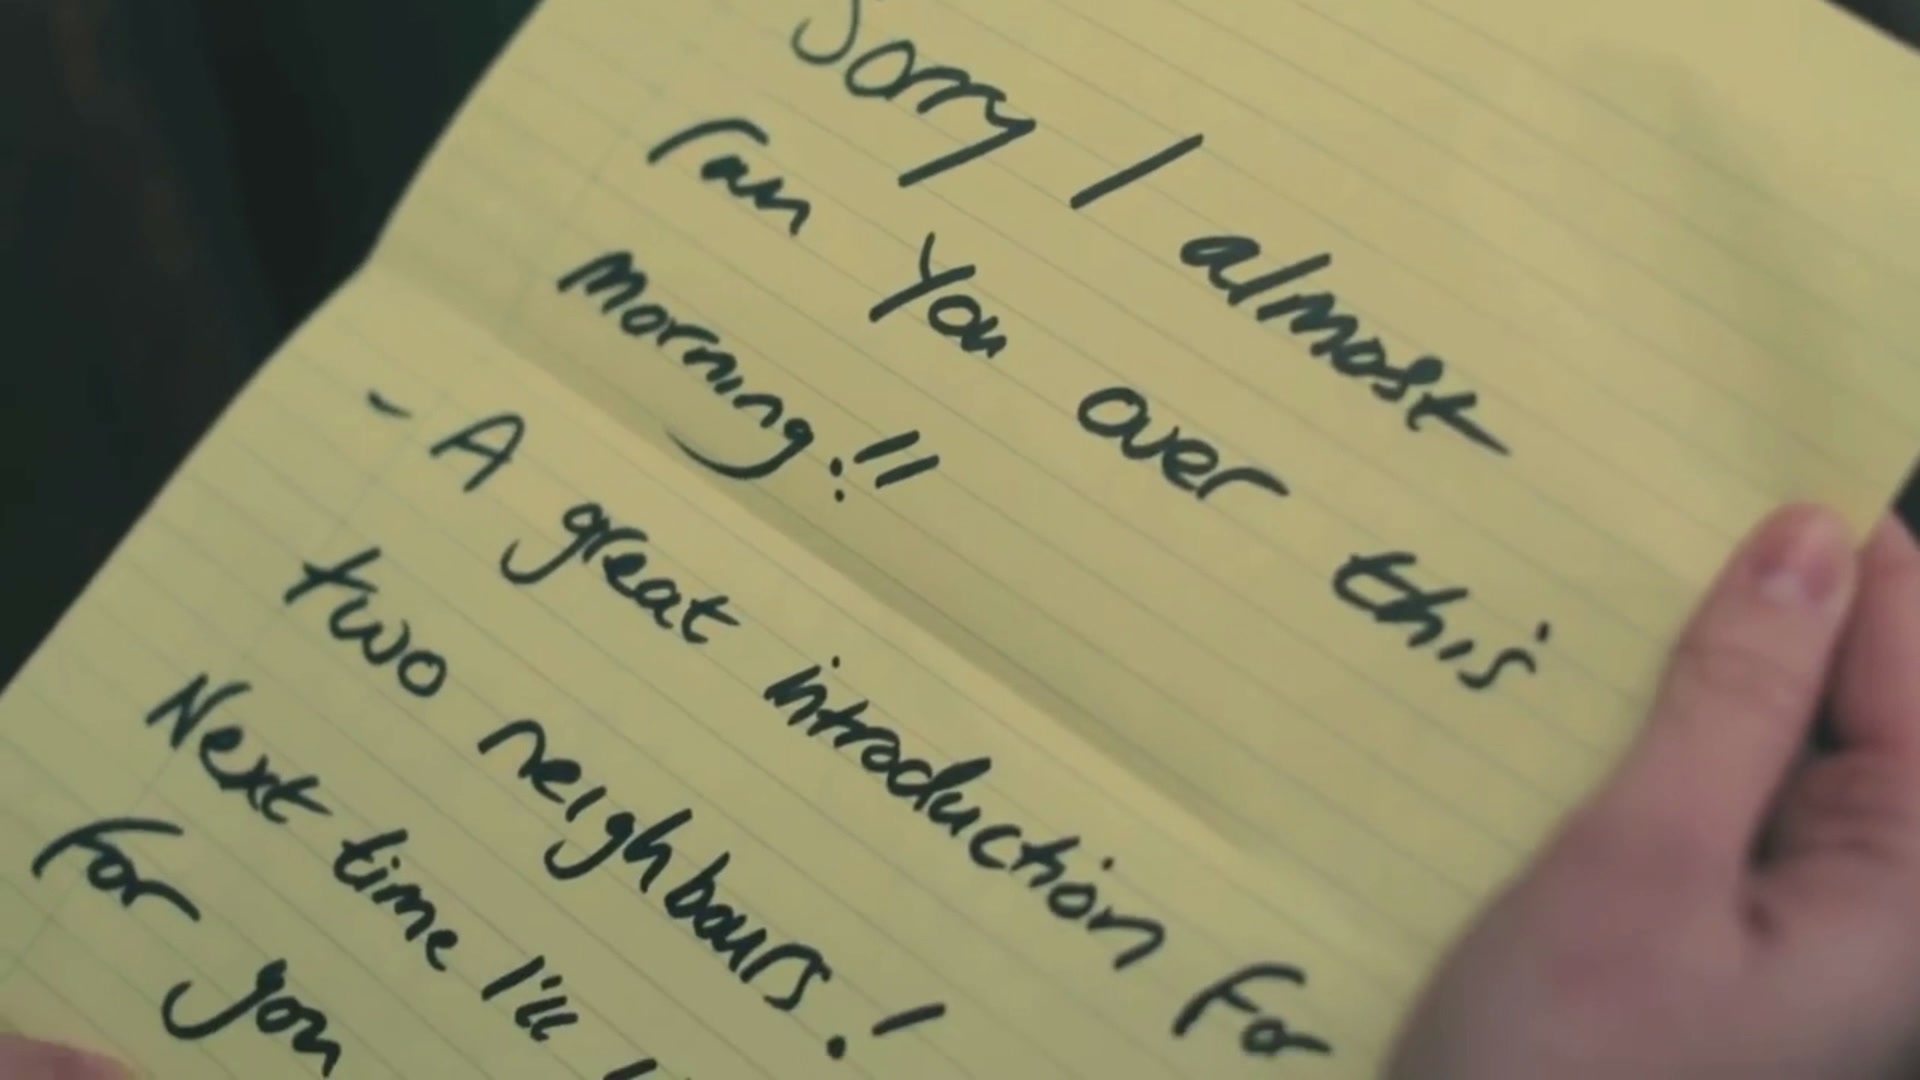 Sorry I almost
ran you over this
morning!!
- A great introduction for
two neighbours!
Next time I'll
for you